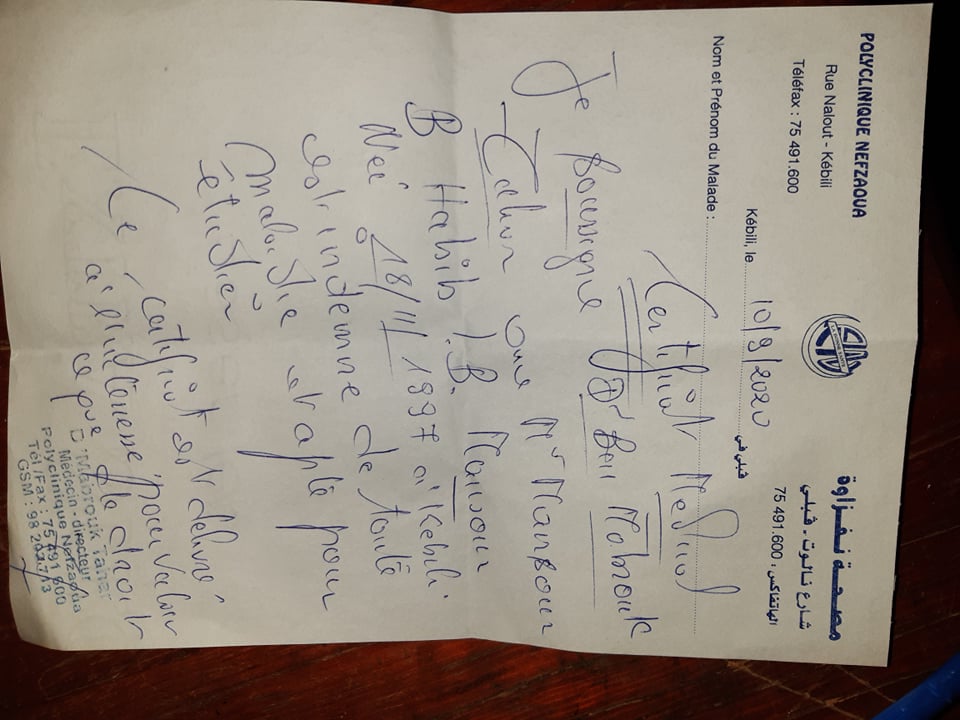 POLYCLINIQUE NEFZAOUA
Rue Nalout - Kébili
Téléfax : 75 491.600
مصحة نفزاوة
شارع نالوت - قبلي
الهاتفاكس : 75 491.600
Kébili, le 10/9/2020 قبلي في
Nom et Prénom du Malade :
Certificat Medical
Je soussigne Dr Ben Mabrouk
Tahar que Mr Mansour
B Habib B. Mansour
Née 18/11/1997 a' Kebili
est indemne de toute
maladie et apte pour
étudier
Ce certificat est delivré
a' l'interessé pour valoir
ce que de droit
Dr Mabrouk Tahar
Médecin - directeur
Polyclinique Nefzaoua
Tél / Fax : 75 491 600
GSM : 98